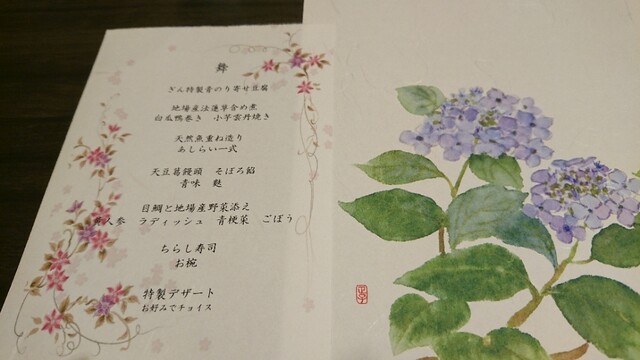 舞
ぎん特製青のり寄せ豆腐
地場産法蓮草含め煮
白瓜鴨巻き 小芋雲丹焼き
天然魚重ね造り
あしらい一式
天豆葛饅頭 そぼろ餡
青味 麩
目鯛と地場産野菜添え
人参 ラディッシュ 青梗菜 ごぼう
ちらし寿司
お椀
特製デザート
お好みでチョイス